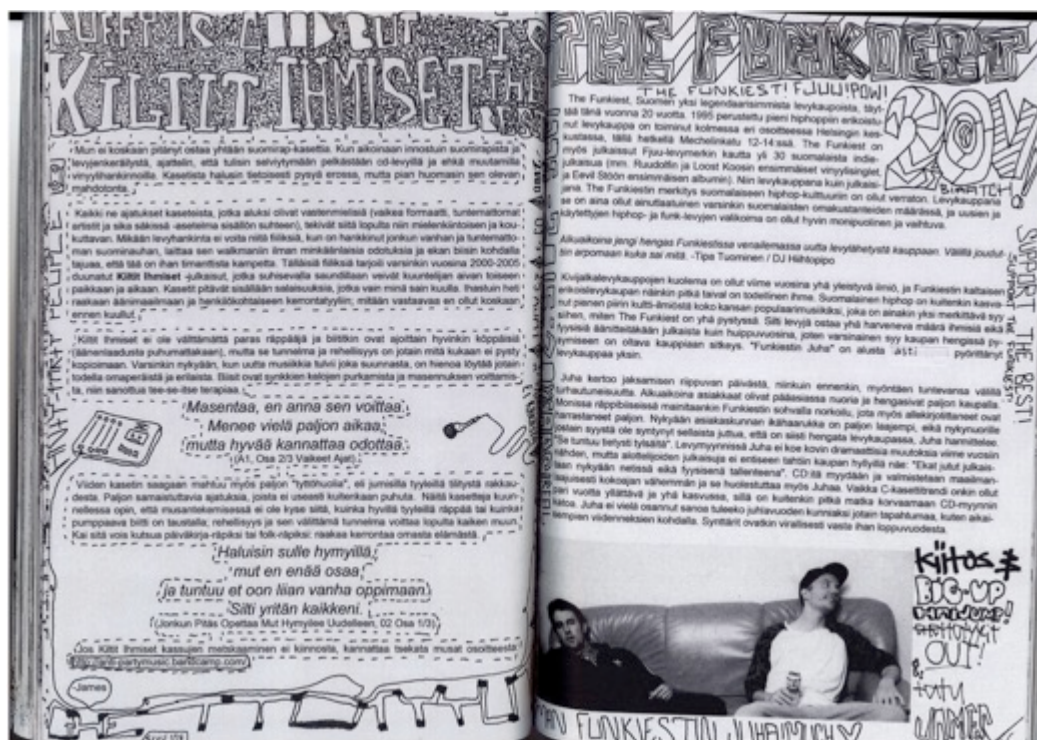 KILTIT IHMISET
Mun ei koskaan pitänyt ostaa yhtään suomirap-kasettia. Kun aikoinaan innostuin suomirapista ja
levyjenkeräilystä, ajattelin, että tulisin selviytymään pelkästään cd-levyillä ja ehkä muutamilla
vinyylihankinnoilla. Kasetista halusin tietoisesti pysyä erossa, mutta pian huomasin sen olevan
mahdotonta.
Kaikki ne ajatukset kaseteista, jotka aluksi olivat vastenmielisiä (vaikea formaatti, tuntemattomat
artistit ja sika säkissä -asetelma sisällön suhteen), tekivät siitä lopulta niin mielenkiintoisen ja kou-
kuttavan. Mikään levyhankinta ei voita niitä fiiliksiä, kun on hankkinut jonkun vanhan ja tuntematto-
man suominauhan, laittaa sen walkmaniin ilman minkäänlaisia odotuksia ja ekan biisin kohdalla
tajuaa, että tää on ihan timanttista kampetta. Tällaisia fiiliksiä tarjoili varsinkin vuosina 2000-2005
duunatut Kiltit Ihmiset -julkaisut, jotka suhisevalla saundillaan veivät kuuntelijan aivan toiseen
paikkaan ja aikaan. Kasetit pitävät sisällään salaisuuksia, jotka vain minä sain kuulla. Ihastuin heti
raakaan äänimaailmaan ja henkilökohtaiseen kerrontatyyliin; mitään vastaavaa en ollut koskaan
ennen kuullut.
Kiltit Ihmiset ei ole välttämättä paras räppääjä ja biititkin ovat ajoittain hyvinkin köppäisiä
(äänenlaadusta puhumattakaan), mutta se tunnelma ja rehellisyys on jotain mitä kukaan ei pysty
kopioimaan. Varsinkin nykyään, kun uutta musiikkia tulvii joka suunnasta, on hienoa löytää jotain
todella omaperäistä ja erilaista. Biisit ovat synkkien kelojen purkamista ja masennuksen voittamis-
ta, niin sanottua tee-se-itse terapiaa.
Masentaa, en anna sen voittaa.
Menee vielä paljon aikaa,
mutta hyvää kannattaa odottaa.
(A1, Osa 2/3 Vaikeet Ajat)
Viiden kasetin saagaan mahtuu myös paljon "tyttöhuolia", eli jumisilla tyyleillä tilitystä rakkau-
desta. Paljon samaistuttavia ajatuksia, joista ei useasti kuitenkaan puhuta. Näitä kasetteja kuun-
nellessa opin, että musantekemisessä ei ole kyse siitä, kuinka hyvillä tyyleillä räppää tai kuinka
pumppaava biitti on taustalla; rehellisyys ja sen välittämä tunnelma voittaa lopulta kaiken muun.
Kai sitä vois kutsua päiväkirja-räpiksi tai folk-räpiksi: raakaa kerrontaa omasta elämästä.
Haluisin sulle hymyillä,
mut en enää osaa,
ja tuntuu et oon liian vanha oppimaan.
Silti yritän kaikkeni.
(Jonkun Pitäs Opettaa Mut Hymyilee Uudelleen, 02 Osa 1/3)
Jos Kiltit Ihmiset kassujen metskaaminen ei kiinnosta, kannattaa tsekata musat osoitteesta
http://anti-partymusic.bandcamp.com/
-James
THE FUNKIEST
THE FUNKIEST! FJUU!POW!
20V
BIAATCH!
The Funkiest, Suomen yksi legendaarisimmista levykaupoista, täyt-
tää tänä vuonna 20 vuotta. 1995 perustettu pieni hiphoppiin erikoistu-
nut levykauppa on toiminut kolmessa eri osoitteessa Helsingin kes-
kustassa, tällä hetkellä Mechelinkatu 12-14:ssä. The Funkiest on
myös julkaissut Fjuu-levymerkin kautta yli 30 suomalaista indie-
julkaisua (mm. Ruudolfin ja Loost Koosin ensimmäiset vinyylisinglet,
ja Eevil Stöön ensimmäisen albumin). Niin levykauppana kuin julkaisi-
jana, The Funkiestin merkitys suomalaiseen hiphop-kulttuuriin on ollut verraton. Levykauppana
se on aina ollut ainutlaatuinen varsinkin suomalaisten omakustanteiden määrässä, ja uusien ja
käytettyjen hiphop- ja funk-levyjen valikoima on ollut hyvin monipuolinen ja vaihtuva.
Aikuaikoina jengi hengas Funkiestissa venailemassa uutta levylähetystä kauppaan. Välillä joudut-
tiin arpomaan kuka sai mitä. -Tipe Tuominen / DJ Hiihtopipo
Kivijalkalevykauppojen kuolema on ollut viime vuosina yhä yleistyvä ilmiö, ja Funkiestin kaltaisen
erikoislevykaupan näinkin pitkä taival on todellinen ihme. Suomalainen hiphop on kuitenkin kasva-
nut pienen piirin kultti-ilmiöstä koko kansan populaarimusiikiksi, joka on ainakin yksi merkittävä syy
siihen, miten The Funkiest on yhä pystyssä. Silti levyjä ostaa yhä harveneva määrä ihmisiä eikä
fyysisiä äänitteitäkään julkaista kuin huippuvuosina, joten varsinainen syy kaupan hengissä py-
tymiseen on oltava kauppiaan sitkeys. "Funkiestin Juha" on alusta asti pyörittänyt
levykauppaa yksin.
Juha kertoo jaksamisen riippuvan päivästä, niinkuin ennenkin, myöntäen tuntevansa välillä
turhautuneisuutta. Aikuaikoina asiakkaat olivat pääasiassa nuoria ja hengasivat paljon kaupalla.
Monissa räppibiiseissä mainitaankin Funkiestin sohvalla norkoilu, jota myös allekirjoittaneet ovat
harrastaneet paljon. Nykyään asiakaskunnan ikähaarukka on paljon laajempi, eikä nykynuorille
jostain syystä ole syntynyt sellaista juttua, että on siisti hengata levykaupassa, Juha harmittelee.
"Se tuntuu betysti tylsältä". Levymyynnissä Juha ei koe kovin dramaattisia muutoksia viime vuosiin
nähden, mutta aloittelijoiden julkaisuja ei entiseen tahtiin kaupan hyllyillä näe: "Ekat jutut julkais-
laan nykyään netissä eikä fyysisenä tallenteena". CD:itä myydään ja valmistetaan maailman-
laajuisesti kokoajan vähemmän ja se huolestuttaa myös Juhaa. Vaikka C-kasettitrendi onkin ollut
pari vuotta yllättävä ja yhä kasvussa, sillä on kuitenkin pitkä matka korvaamaan CD-myynnin
tuloa. Juha ei vielä osannut sanoa tuleeko juhlavuoden kunniaksi jotain tapahtumaa, kuten aikai-
sempien viidenneksien kohdalla. Synttärit ovatkin virallisesti vasta ihan loppuvuodesta.
SUPPORT THE BEST!
SUPPORT THE FUNKIEST!
Kiitos &
BIG-UP
OUT!
&